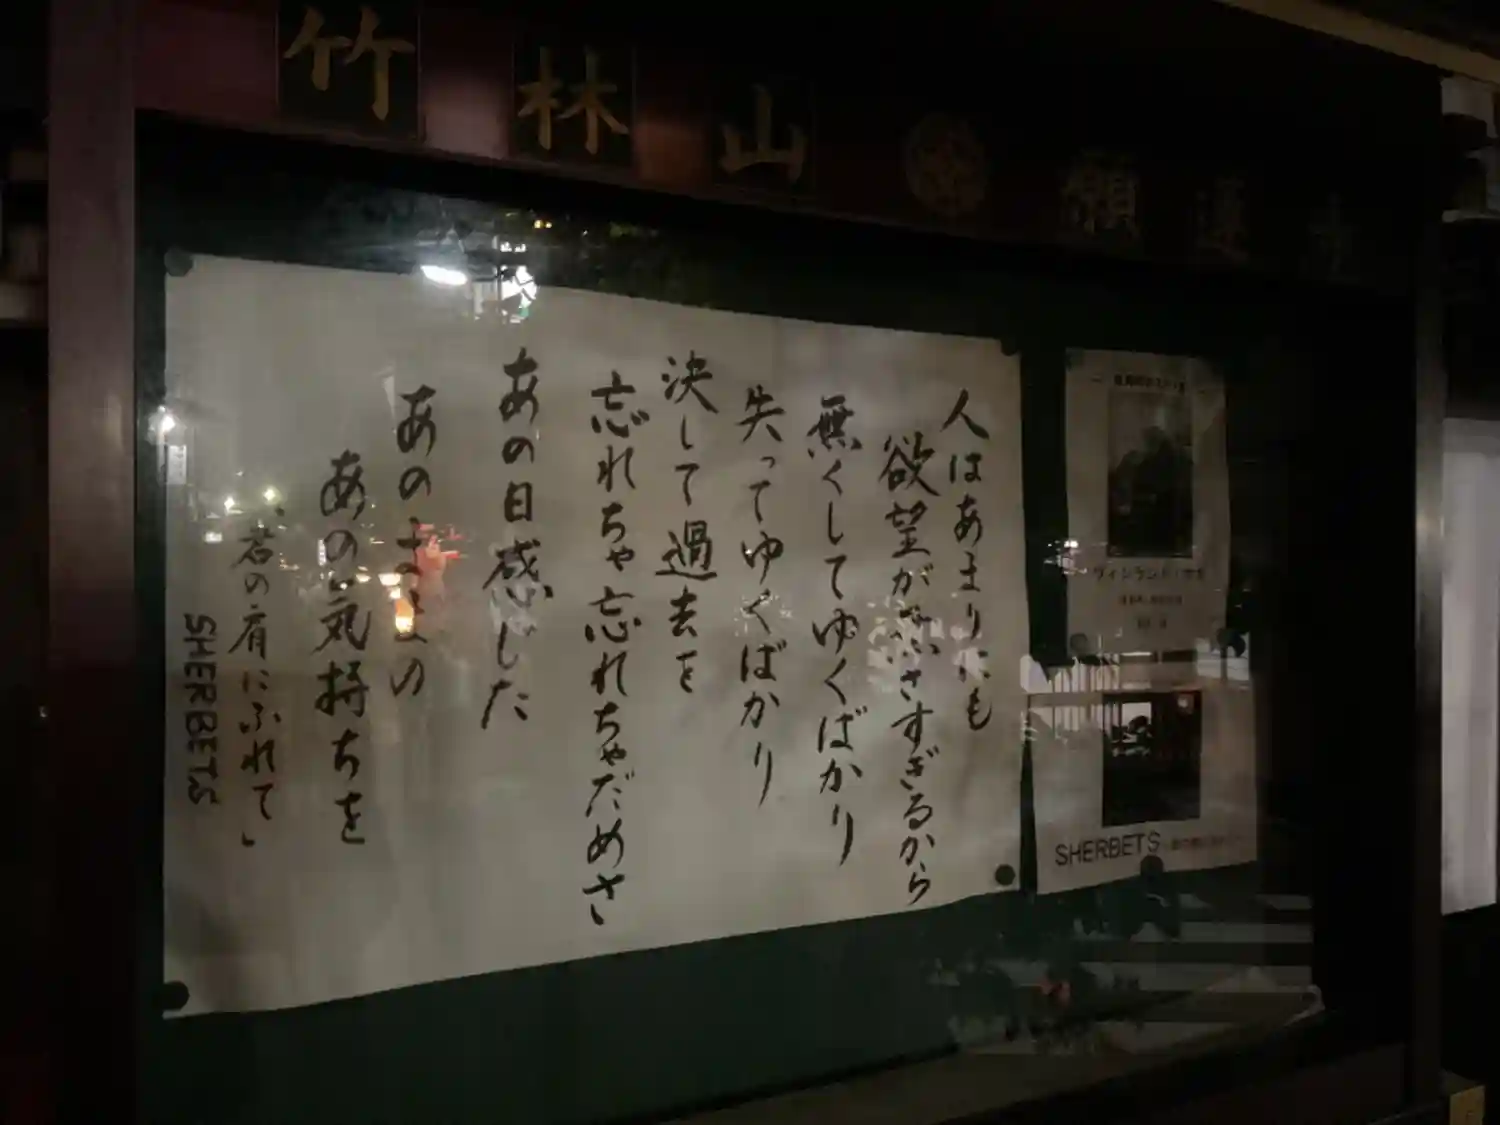 竹林山 願蓮寺
人はあまりにも
欲望が深すぎるから
無くしてゆくばかり
失ってゆくばかり
決して過去を
忘れちゃ忘れちゃだめさ
あの日感じた
あのままの
あの気持ちを
「君の肩にふれて」
SHERBETS
SHERBETS